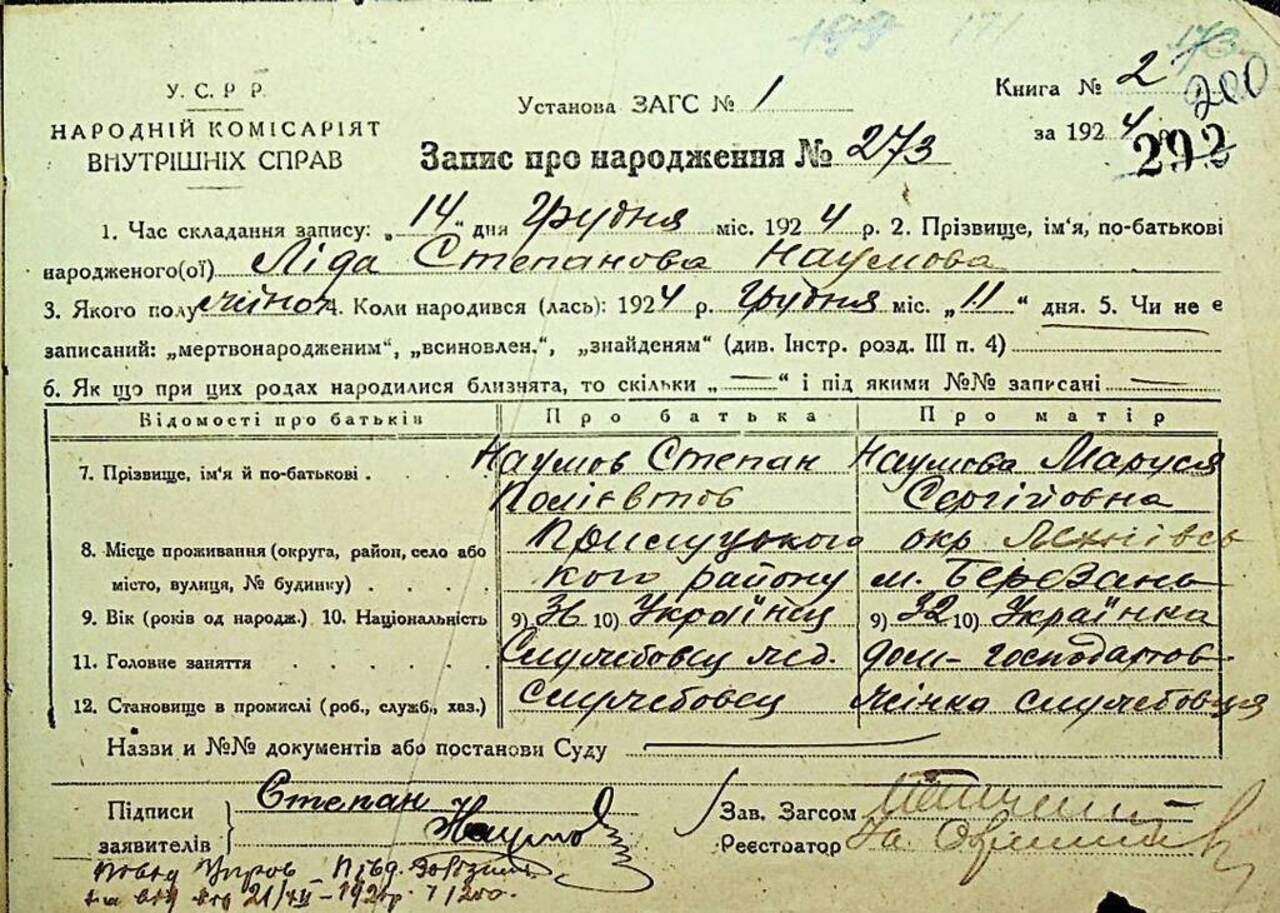 199 171 173
У. С. Р. Р.
НАРОДНІЙ КОМІСАРІЯТ
ВНУТРІШНІХ СПРАВ
Установа ЗАГС № 1
Книга № 2
200
за 1924
292
Запис про народження № 273
1. Час складання запису: „14" дня Грудня міс. 1924 р. 2. Прізвище, ім'я, по-батькові
народженого(ої) Ліда Степанова Наумова
3. Якого полу жіноч 4. Коли народився (лась): 1924 р. Грудня міс. „11" дня. 5. Чи не є
записаний: „мертвонародженим", „всиновлен.", „знайденям" (див. Інстр. розд. III п. 4)
6. Як що при цих родах народилися близнята, то скільки „—" і під якими №№ записані —
Відомості про батьків Про батька Про матір
7. Прізвище, ім'я й по-батькові Наумов Степан Наумова Маруся
Полієвтов Сергійовна
8. Місце проживання (округа, район, село або Прилуцького окр
місто, вулиця, № будинку) кого району м. Березань
9. Вік (років од народж.) 10. Національність 9) 36 10) Українец 9) 32 10) Українка
11. Головне заняття Служебовец дом-господартов
12. Становище в промислі (роб., служб., хаз.) Служебовец жінка служебовця
Назви и №№ документів або постанови Суду
Підписи
заявителів
Степан
Наумов
Зав. Загсом
Реєстратор